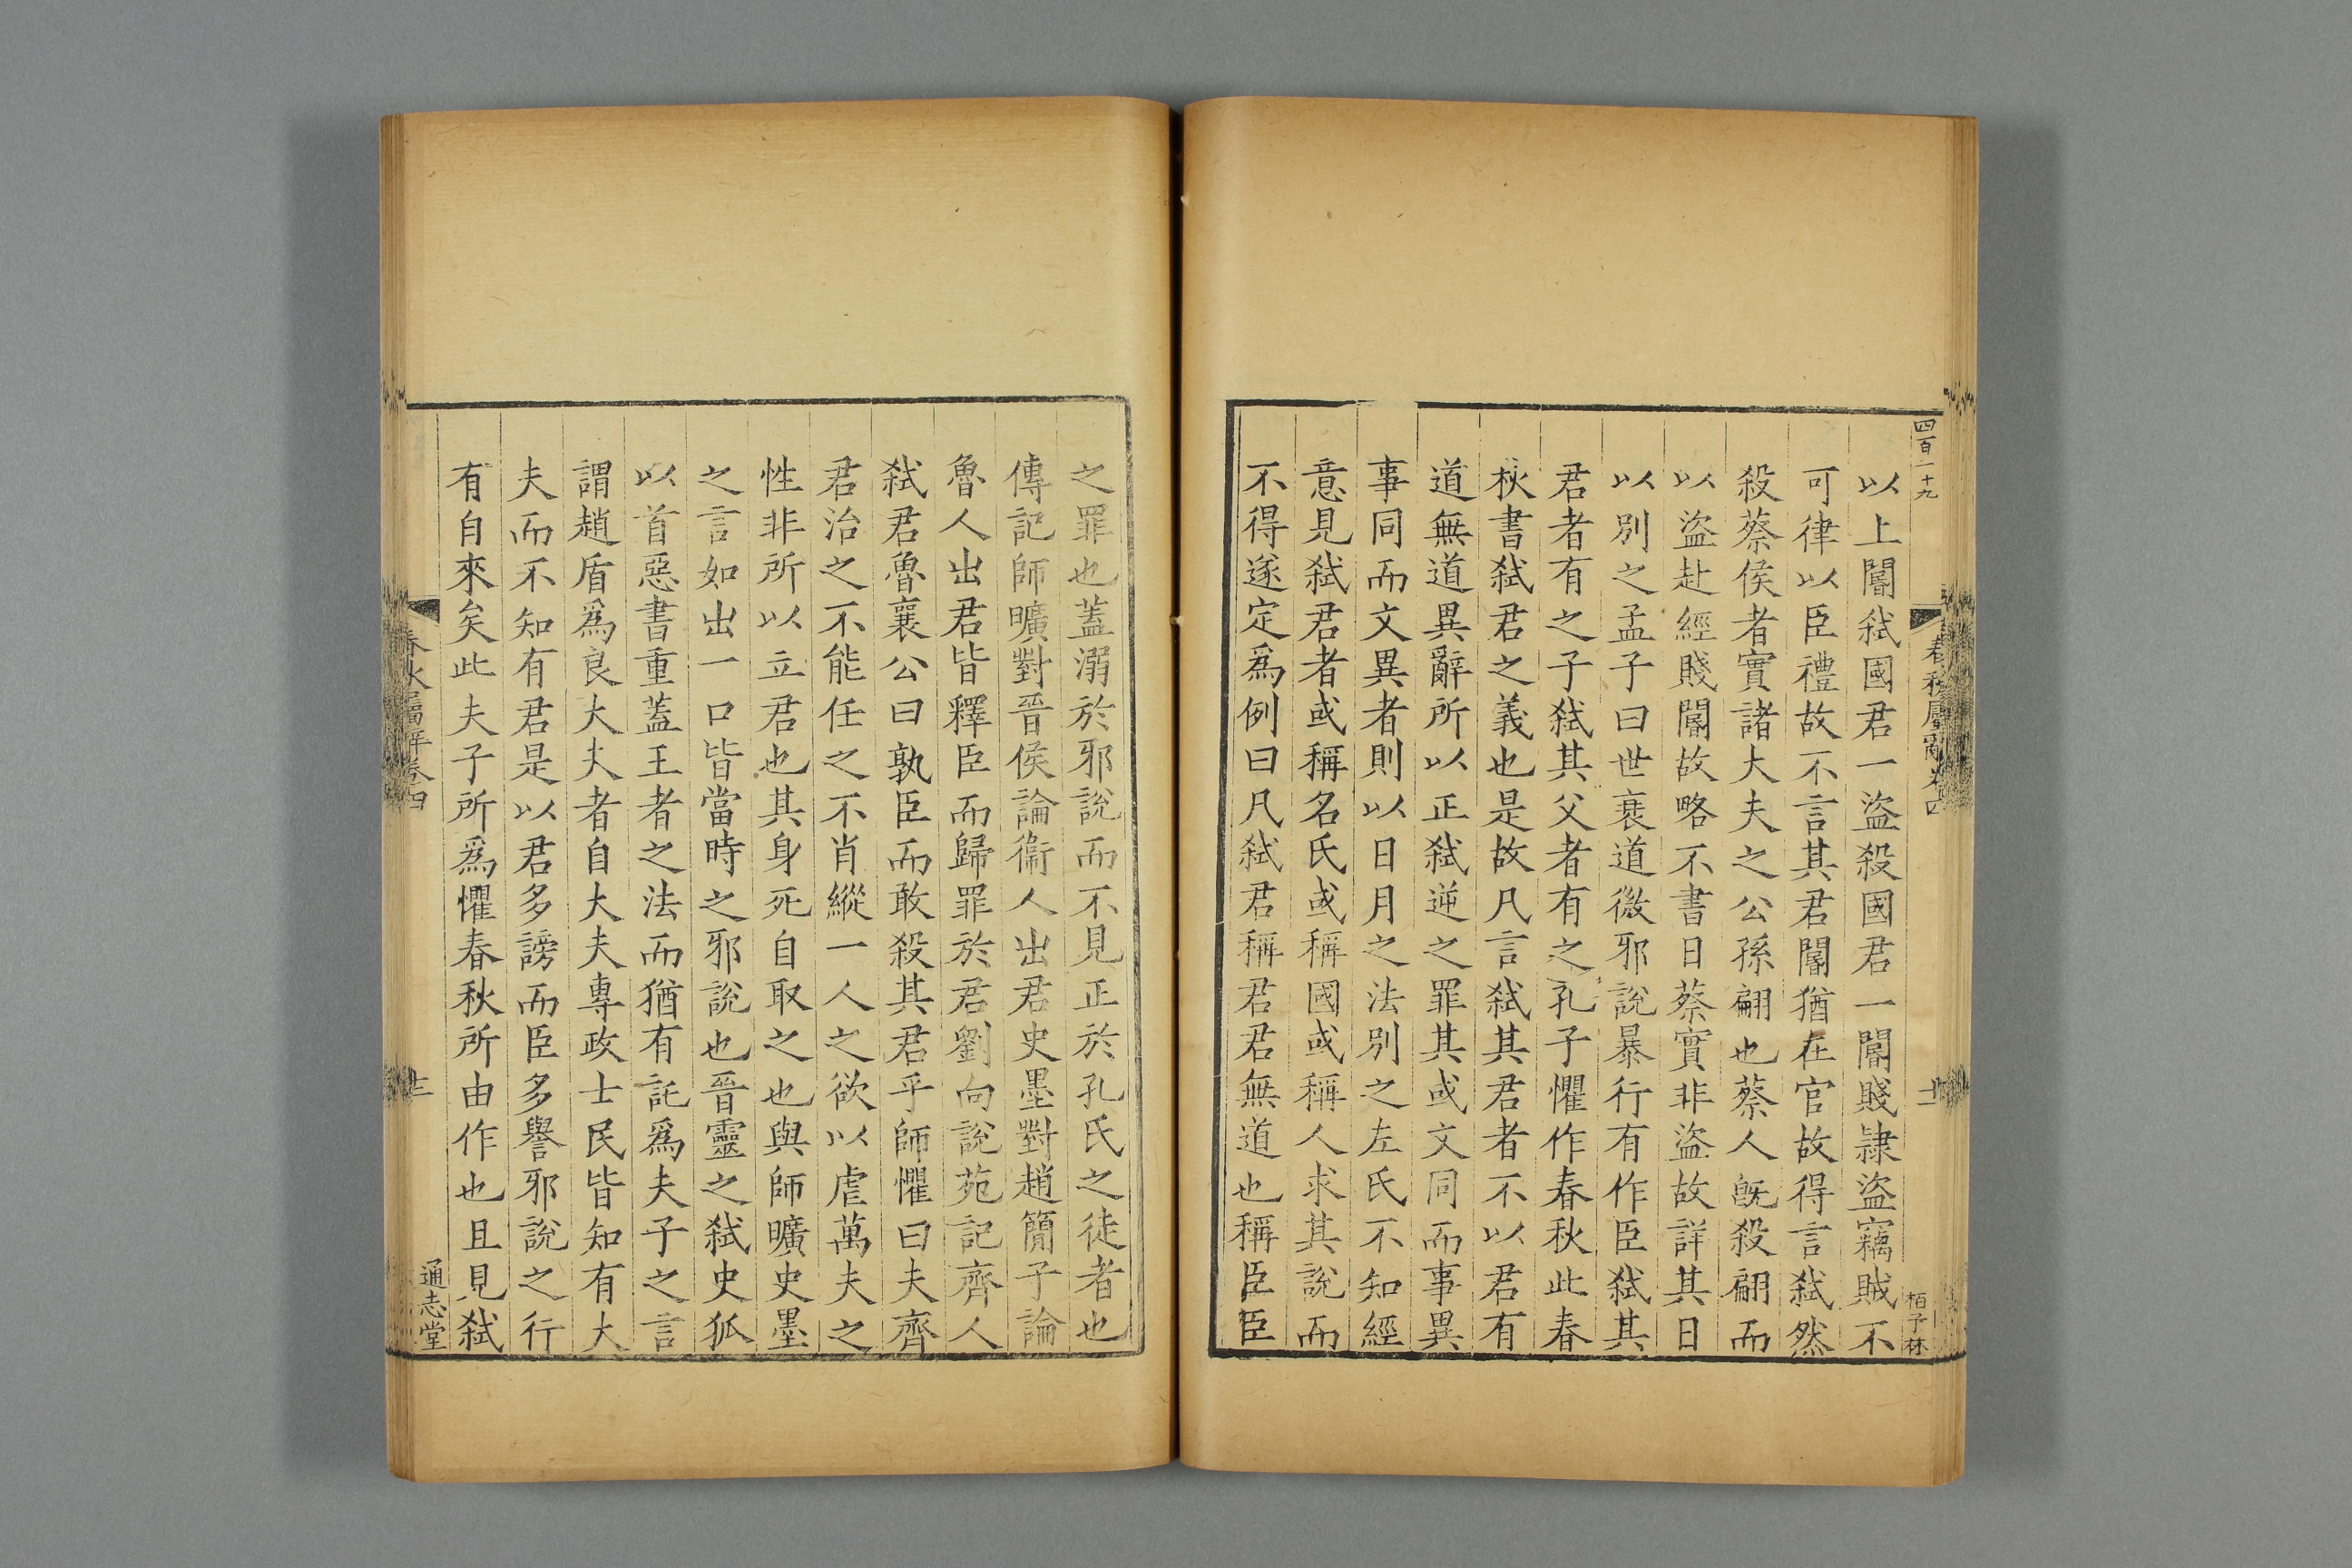 四百一十九
以上閽弒國君一盜殺國君一閽賤隷盜竊賊不
可律以臣禮故不言其君閽猶在官故得言弒然
殺蔡侯者實諸大夫之公孫翩也蔡人旣殺翩而
以盜赴經賤閽故略不書日蔡實非盜故詳其日
以別之孟子曰世衰道微邪說暴行有作臣弒其
君者有之子弒其父者有之孔子懼作春秋此春
秋書弒君之義也是故凡言弒其君者不以君有
道無道異辭所以正弒逆之罪其或文同而事異
事同而文異者則以日月之法別之左氏不知經
意見弒君者或稱名氏或稱國或稱人求其說而
不得遂定爲例曰凡弒君稱君君無道也稱臣臣
春秋屬辭卷四
栢子林
之罪也蓋溺於邪說而不見正於孔氏之徒者也
傳記師曠對晉侯論衞人出君史墨對趙簡子論
魯人出君皆釋臣而歸罪於君劉向說苑記齊人
弒君魯襄公曰孰臣而敢殺其君乎師懼曰夫齊
君治之不能任之不肖縱一人之欲以虐萬夫之
性非所以立君也其身死自取之也與師曠史墨
之言如出一口皆當時之邪說也晉靈之弒史狐
以首惡書重蓋王者之法而猶有託爲夫子之言
謂趙盾爲良大夫者自大夫專政士民皆知有大
夫而不知有君是以君多謗而臣多譽邪說之行
有自來矣此夫子所爲懼春秋所由作也且見弒
春秋屬辭卷四
通志堂